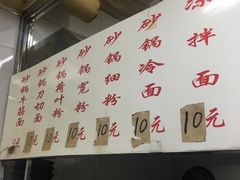 拌面
10元
砂锅冷面
10元
砂锅细粉
10元
砂锅宽粉
10元
砂锅荷叶粉
10元
砂锅刀切面
10元
砂锅牛筋面
元